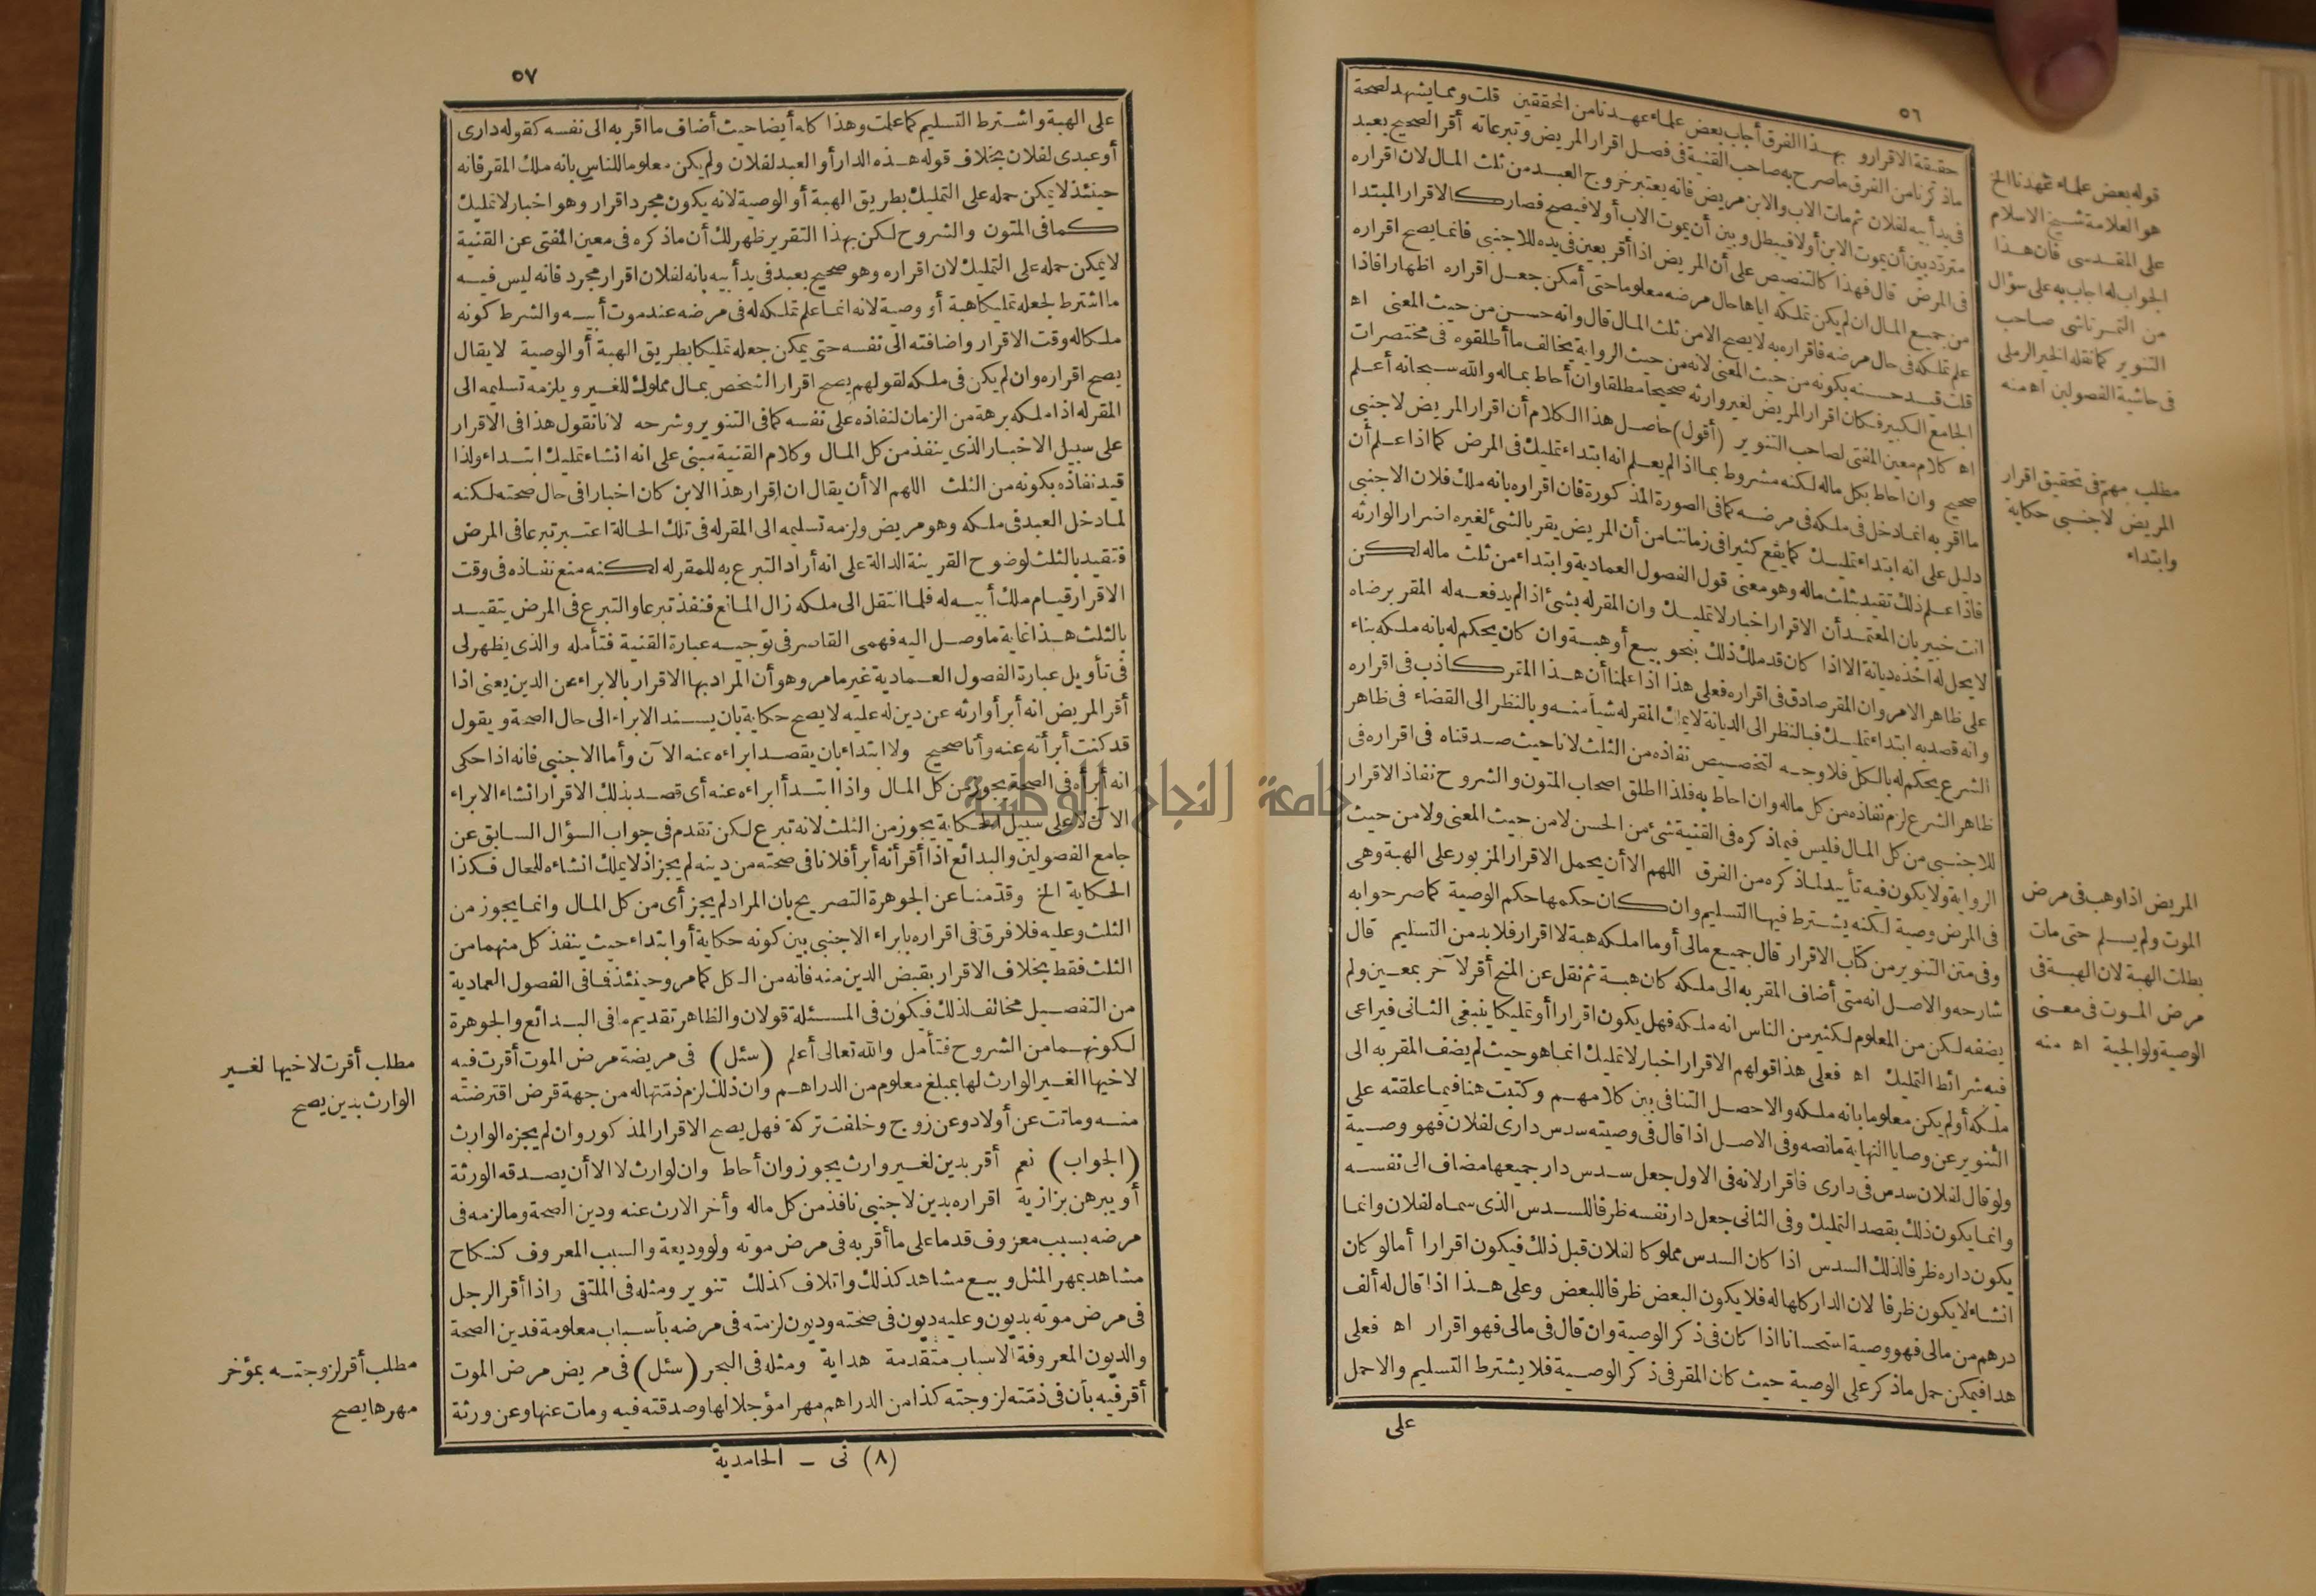 ٥٦
حقيقة الاقرار وبهذا الفرق أجاب بعض علماء عهدنا من المحققين قلت ومما يشهد لصحة
ماذكرنا من الفرق ماصرح به صاحب القنية فى فصل اقرار المريض وتبرعاته أقر الصحيح بعبد
فى يد أبيه لفلان ثم مات الاب والابن مريض فانه يعتبر خروج العبد من ثلث المال لان اقراره
متردد بين أن يموت الابن أولا فيبطل وبين أن يموت الاب أولا فيصح فصار كالاقرار المبتدا
فى المرض قال فهذا كالتنصيص على أن المريض اذا أقر بعين فى يده للاجنبى فانما يصح اقراره
من جميع المال ان لم يكن تملكه اياها حال مرضه معلوما حتى أمكن جعل اقراره اظهارا فاذا
علم تملكه فى حال مرضه فاقراره به لا يصح الا من ثلث المال قال وانه حسن من حيث المعنى اه
قلت قيد حسنه بكونه من حيث المعنى لانه من حيث الرواية يخالف ما أطلقوه فى مختصرات
الجامع الكبير فكان اقرار المريض لغير وارثه صحيحا مطلقا وان أحاط بماله والله سبحانه أعلم
اه كلام معين المفتى لصاحب التنوير (أقول) حاصل هذا الكلام أن اقرار المريض لاجنبى
صحيح وان احاط بكل ماله لكنه مشروط بما اذا لم يعلم انه ابتداء تمليك فى المرض كما اذا علم أن
ما اقر به انما دخل فى ملكه فى مرضه كما فى الصورة المذكورة فان اقراره بانه ملك فلان الاجنبى
دليل على انه ابتداء تمليك كما يقع كثيرا فى زماننا من أن المريض يقر بالشئ لغيره اضرارا لوارثه
فاذا علم ذلك تقيد بثلث ماله وهو معنى قول الفصول العمادية وابتداء من ثلث ماله لكن
انت خبير بان المعتمد أن الاقرار اخبار لا تمليك وان المقر له بشئ اذا لم يدفعه له المقر برضاه
لا يحل له أخذه ديانة الا اذا كان قد ملك ذلك بنحو بيع أو هبة وان كان يحكم له بانه ملكه بناء
على ظاهر الامر وان المقر صادق فى اقراره فعلى هذا اذا علمنا أن هذا المقر كاذب فى اقراره
وانه قصد به ابتداء تمليك فبالنظر الى الديانة لا يملك المقر له شيأ منه وبالنظر الى القضاء فى ظاهر
الشرع يحكم له بالكل فلا وجه لتخصيص نفاذه من الثلث لانا حيث صدقناه فى اقراره فى
ظاهر الشرع لزم نفاذه من كل ماله وان احاط به فلذا اطلق اصحاب المتون والشروح نفاذ الاقرار
للاجنبى من كل المال فليس فيما ذكره فى القنية شئ من الحسن لا من حيث المعنى ولا من حيث
الرواية ولا يكون فيه تأييد لما ذكره من الفرق اللهم الا أن يحمل الاقرار المزبور على الهبة وهى
فى المرض وصية لكنه يشترط فيها التسليم وان كان حكمها حكم الوصية كما صرحوا به
وفى متن التنوير من كتاب الاقرار قال جميع مالى أو ما املكه هبة لا اقرار فلا بد من التسليم قال
شارحه والاصل انه متى أضاف المقر به الى ملكه كان هبة ثم نقل عن المنح أقر لآخر بمعين ولم
يضفه لكن من المعلوم لكثير من الناس انه ملكه فهل يكون اقرارا أو تمليكا ينبغى الثانى فيراعى
فيه شرائط التمليك اه فعلى هذا قولهم الاقرار اخبار لا تمليك انما هو حيث لم يضف المقر به الى
ملكه أو لم يكن معلوما بانه ملكه والا حصل التنافى بين كلامهم وكتبت هنا فيما علقته على
التنوير عن وصايا النهاية ما نصه وفى الاصل اذا قال فى وصيته سدس دارى لفلان فهو وصية
ولو قال لفلان سدس فى دارى فاقرار لانه فى الاول جعل سدس دار جميعها مضاف الى نفسه
وانما يكون ذلك بقصد التمليك وفى الثانى جعل دار نفسه ظرفا للسدس الذى سماه لفلان وانما
يكون داره ظرفا لذلك السدس اذا كان السدس مملوكا لفلان قبل ذلك فيكون اقرارا أما لو كان
انشاء لا يكون ظرفا لان الدار كلها له فلا يكون البعض ظرفا للبعض وعلى هذا اذا قال له ألف
درهم من مالى فهو وصية استحسانا اذا كان فى ذكر الوصية وان قال فى مالى فهو اقرار اه فعلى
هذا فيمكن حمل ماذكر على الوصية حيث كان المقر فى ذكر الوصية فلا يشترط التسليم والاحمل
على
قوله بعض علماء عهدنا الخ
هو العلامة شيخ الاسلام
على المقدسى فان هذا
الجواب له اجاب به على سؤال
من التمرتاشى صاحب
التنوير كما نقله الخير الرملى
فى حاشية الفصولين اه منه
مطلب مهم فى تحقيق اقرار
المريض لاجنبى حكاية
وابتداء
المريض اذا وهب فى مرض
الموت ولم يسلم حتى مات
بطلت الهبة لان الهبة فى
مرض الموت فى معنى
الوصية ولوالجية اه منه
٥٧
على الهبة واشترط التسليم كما علمت وهذا كله أيضا حيث أضاف ما اقر به الى نفسه كقوله دارى
أو عبدى لفلان بخلاف قوله هذه الدار أو العبد لفلان ولم يكن معلوما للناس بانه ملك المقر فانه
حينئذ لا يمكن حمله على التمليك بطريق الهبة أو الوصية لانه يكون مجرد اقرار وهو اخبار لا تمليك
كما فى المتون والشروح لكن بهذا التقرير ظهر لك أن ماذكره فى معين المفتى عن القنية
لا يمكن حمله على التمليك لان اقراره وهو صحيح بعبد فى يد أبيه بانه لفلان اقرار مجرد فانه ليس فيه
ما اشترط لجعله تمليكا هبة أو وصية لانه انما علم تملكه له فى مرضه عند موت أبيه والشرط كونه
ملكا له وقت الاقرار واضافته الى نفسه حتى يمكن جعله تمليكا بطريق الهبة أو الوصية لا يقال
يصح اقراره وان لم يكن فى ملكه لقولهم يصح اقرار الشخص بمال مملوك للغير ويلزمه تسليمه الى
المقر له اذا ملكه برهة من الزمان لنفاذه على نفسه كما فى التنوير وشرحه لانا نقول هذا فى الاقرار
على سبيل الاخبار الذى ينفذ من كل المال وكلام القنية مبنى على انه انشاء تمليك ابتداء ولذا
قيد نفاذه بكونه من الثلث اللهم الا أن يقال ان اقرار هذا الابن كان اخبارا فى حال صحته لكنه
لما دخل العبد فى ملكه وهو مريض ولزمه تسليمه الى المقر له فى تلك الحالة اعتبر تبرعا فى المرض
فتقيد بالثلث لوضوح القرينة الدالة على انه أراد التبرع به للمقر له لكنه منع نفاذه فى وقت
الاقرار قيام ملك أبيه له فلما انتقل الى ملكه زال المانع فنفذ تبرعا والتبرع فى المرض يتقيد
بالثلث هذا غاية ما وصل اليه فهمى القاصر فى توجيه عبارة القنية فتأمله والذى يظهر لى
فى تأويل عبارة الفصول العمادية غير ما مر وهو أن المراد بها الاقرار بالابراء عن الدين يعنى اذا
أقر المريض انه أبرأ وارثه عن دين له عليه لا يصح حكاية بان يسند الابراء الى حال الصحة ويقول
قد كنت أبرأته عنه وأنا صحيح ولا ابتداء بان يقصد ابراءه عنه الآن وأما الاجنبى فانه اذا حكى
انه أبرأه فى الصحة يجوز من كل المال واذا ابتدأ ابراءه عنه أى قصد بذلك الاقرار انشاء الابراء
الآن لا على سبيل الحكاية يجوز من الثلث لانه تبرع لكن تقدم فى جواب السؤال السابق عن
جامع الفصولين والبدائع اذا أقر أنه أبرأ فلانا فى صحته من دينه لم يجز اذ لا يملك انشاءه للحال فكذا
الحكاية الخ وقدمنا عن الجوهرة التصريح بان المراد لم يجز أى من كل المال وانما يجوز من
الثلث وعليه فلا فرق فى اقراره بابراء الاجنبى بين كونه حكاية أو ابتداء حيث ينفذ كل منهما من
الثلث فقط بخلاف الاقرار بقبض الدين منه فانه من الكل كما مر وحينئذ فما فى الفصول العمادية
من التفصيل مخالف لذلك فيكون فى المسئلة قولان والظاهر تقديم ما فى البدائع والجوهرة
لكونهما من الشروح فتأمل والله تعالى أعلم (سئل) فى مريضة مرض الموت أقرت فيه
لاخيها الغير الوارث لها بمبلغ معلوم من الدراهم وان ذلك لزم ذمتها له من جهة قرض اقترضته
منه وماتت عن أولاد وعن زوج وخلفت تركة فهل يصح الاقرار المذكور وان لم يجزه الوارث
(الجواب) نعم أقر بدين لغير وارث يجوز وان أحاط وان لوارث لا الا أن يصدقه الورثة
أو يبرهن بزازية اقراره بدين لاجنبى نافذ من كل ماله وأخر الارث عنه ودين الصحة وما لزمه فى
مرضه بسبب معروف قدما على ما أقر به فى مرض موته ولو وديعة والسبب المعروف كنكاح
مشاهد بمهر المثل وبيع مشاهد كذلك واتلاف كذلك تنوير ومثله فى الملتقى واذا أقر الرجل
فى مرض موته بديون وعليه ديون فى صحته وديون لزمته فى مرضه بأسباب معلومة فدين الصحة
والديون المعروفة الاسباب متقدمة هداية ومثله فى البحر (سئل) فى مريض مرض الموت
أقر فيه بأن فى ذمته لزوجته كذا من الدراهم مهرا مؤجلا لها وصدقته فيه ومات عنها وعن ورثة
(٨) نى – الحامدية
مطلب أقرت لاخيها لغير
الوارث بدين يصح
مطلب أقر لزوجته بمؤخر
مهرها يصح
جامعة النجاح الوطنية